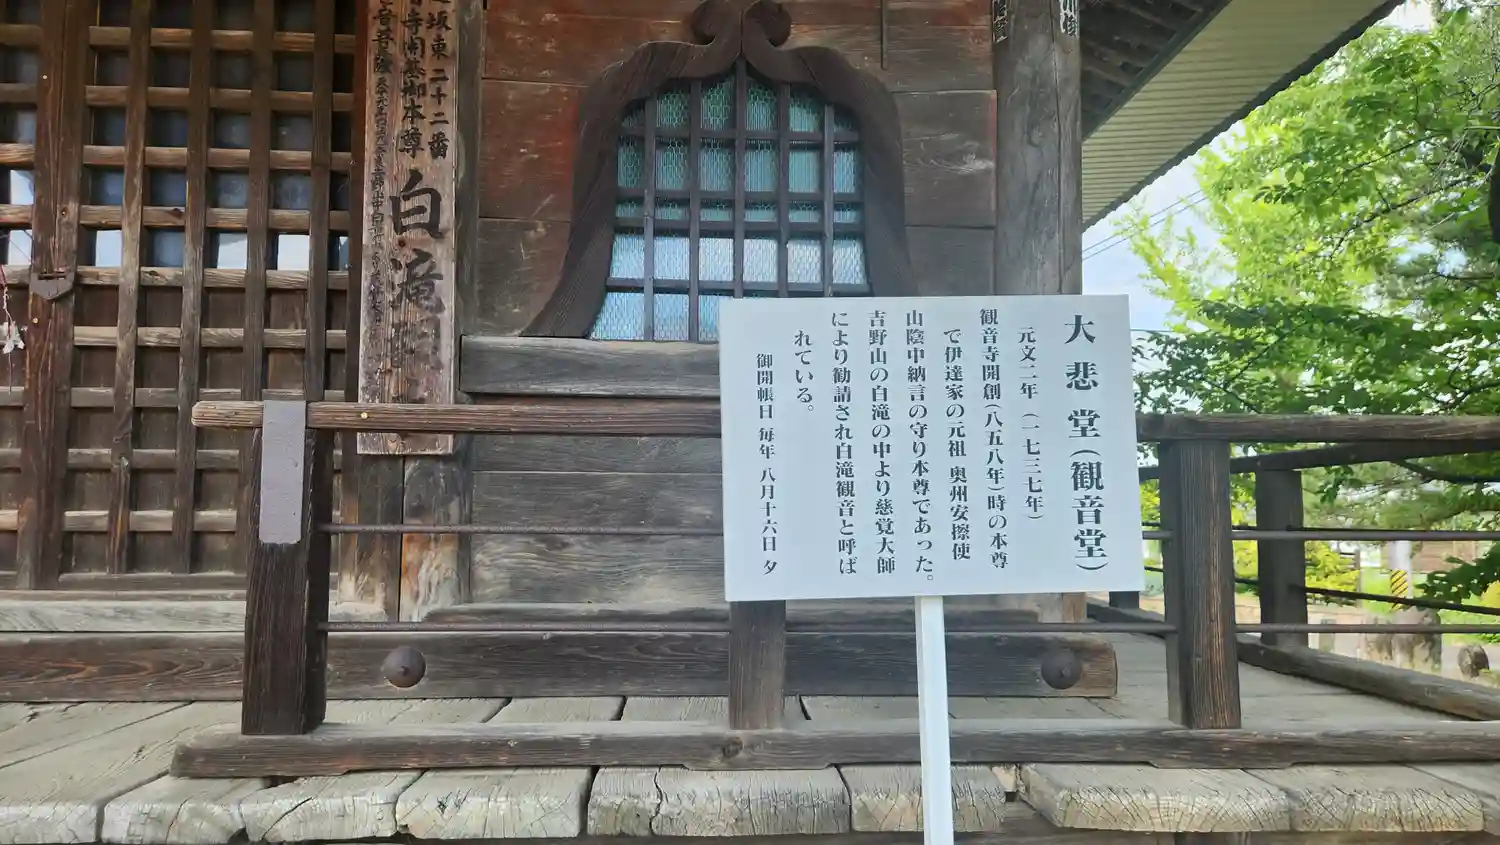 大悲堂(観音堂)
元文二年(一七三七年)
観音寺開創(八五八年)時の本尊
で伊達家の元祖 奥州安擦使
山陰中納言の守り本尊であった。
吉野山の白滝の中より慈覚大師
により勧請され白滝観音と呼ば
れている。
御開帳日 毎年 八月十六日 夕
坂東二十二番
寺開基御本尊
白滝